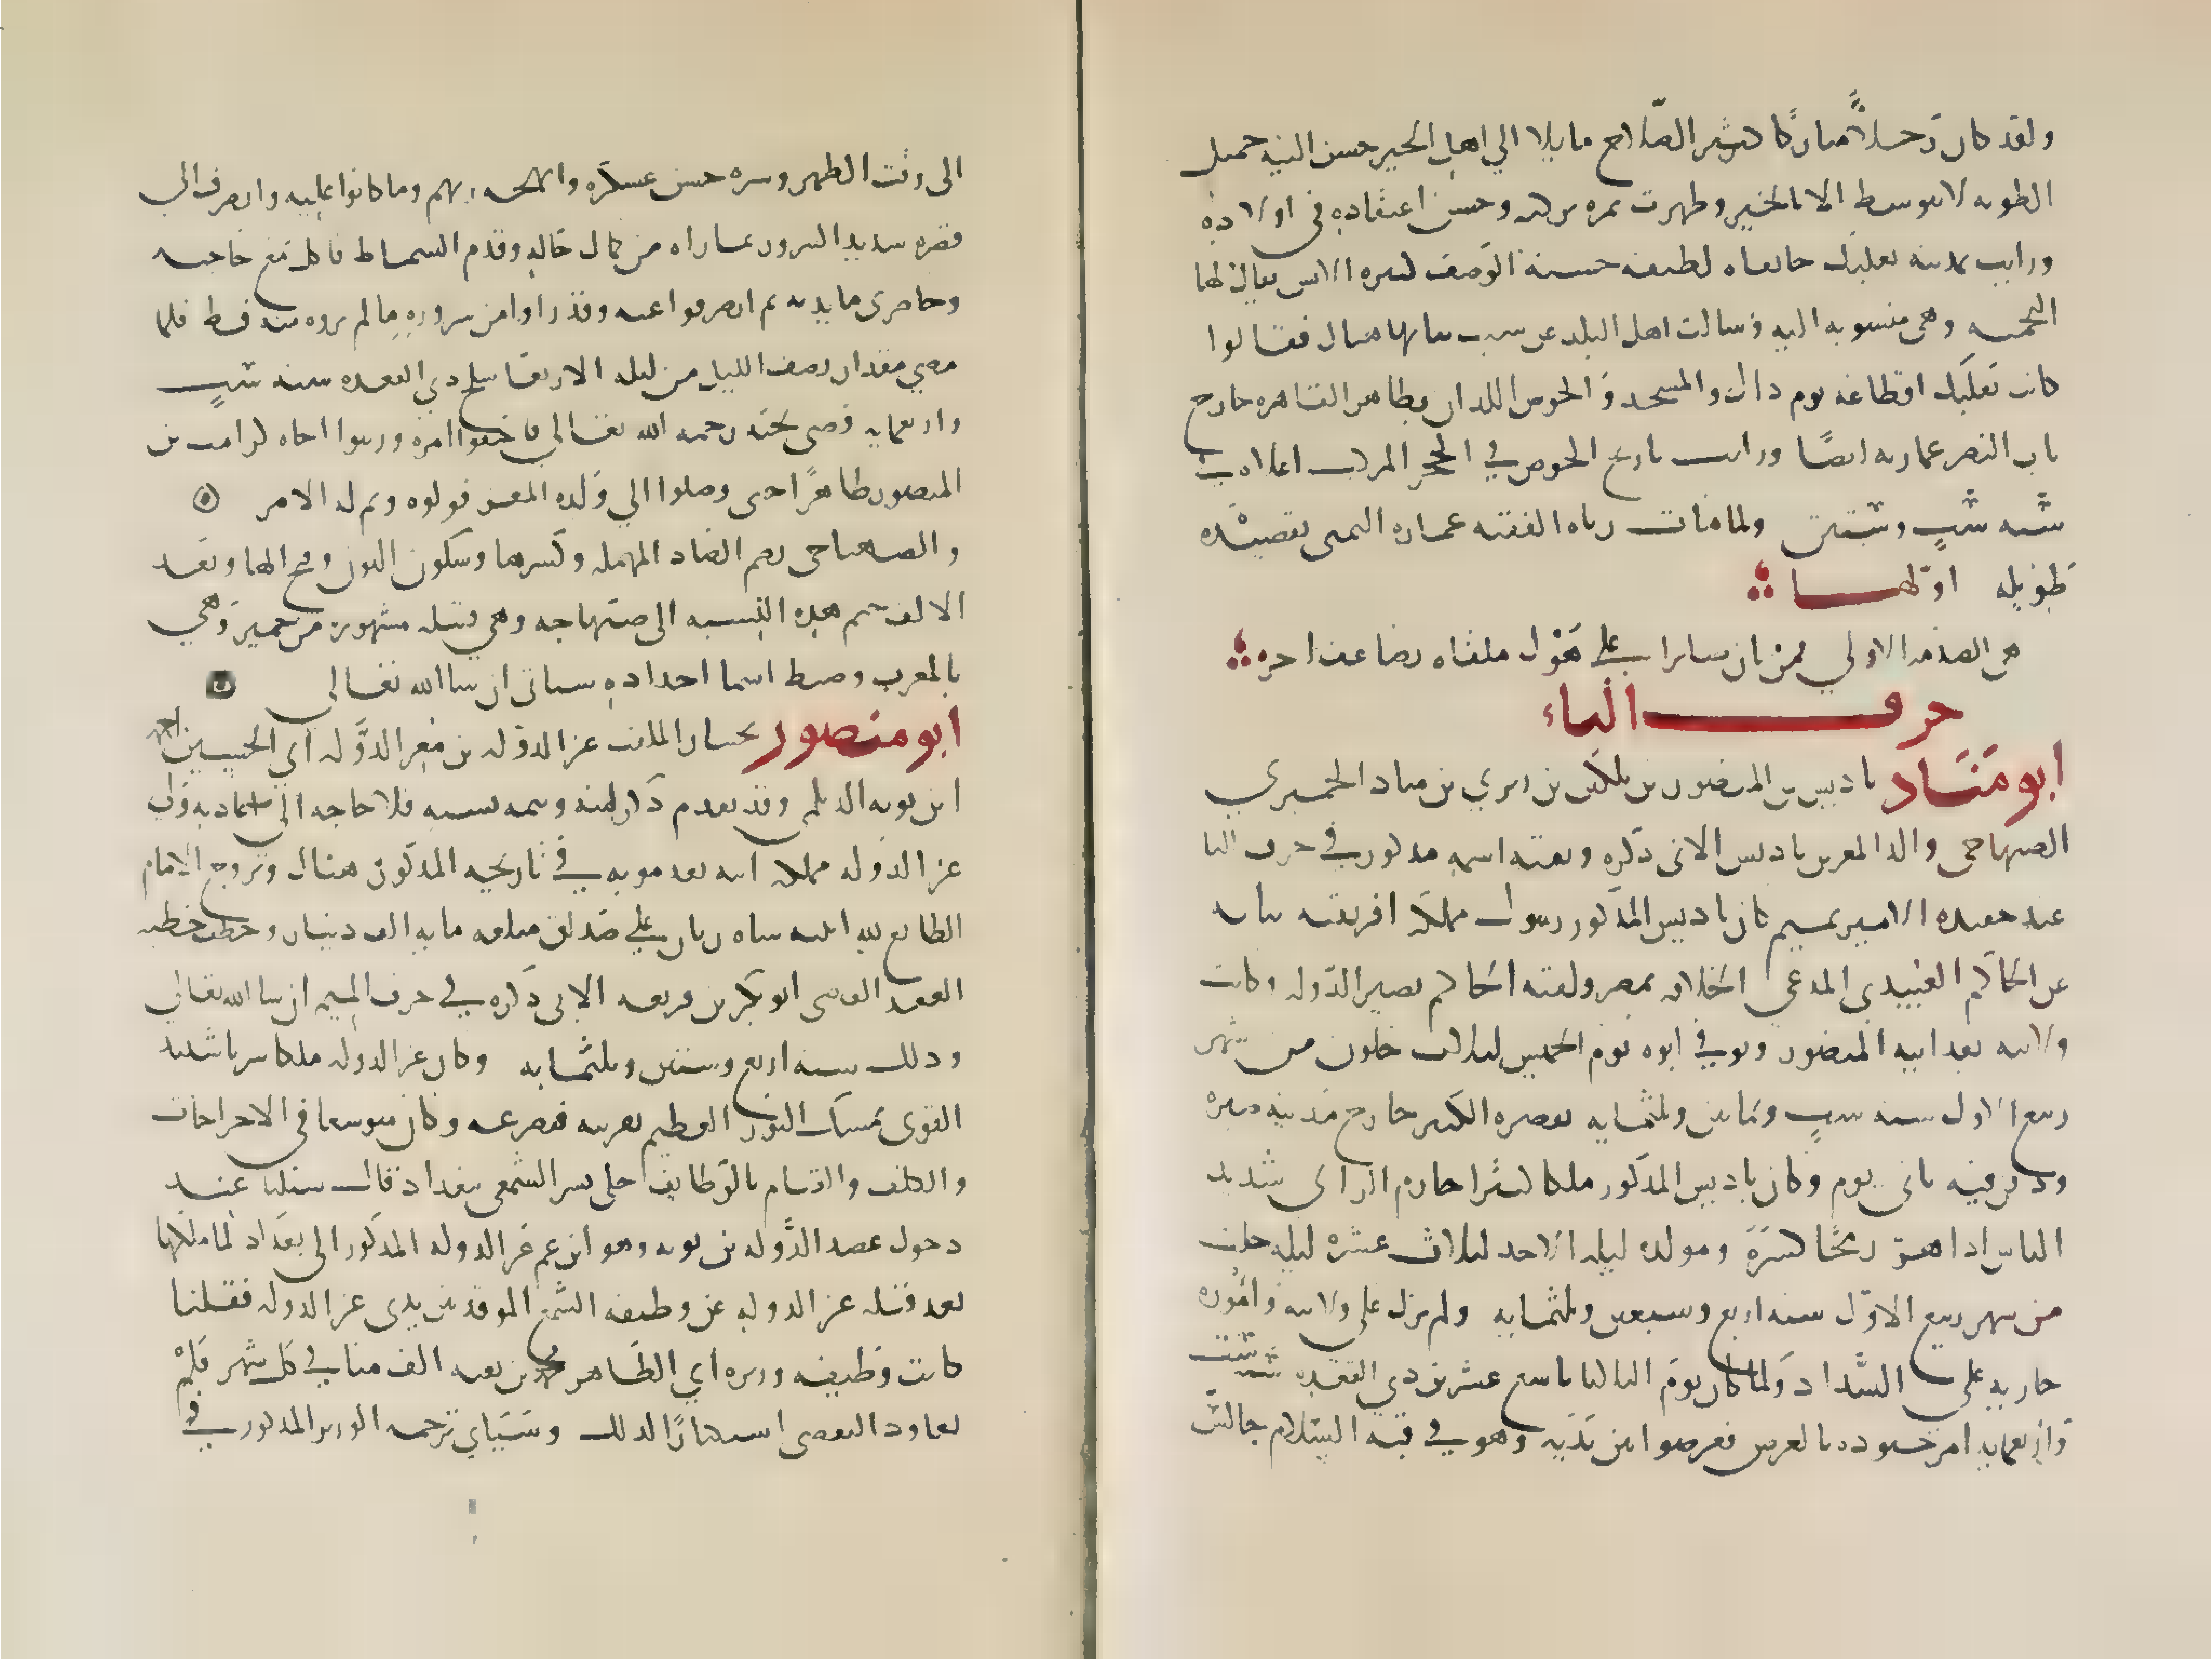 ولقد كان رجلاً مباركا كثير الصلاح مايلا الي اهل الخير حسن النيه جميل
الطويه لا يتوسط الا بالخير وظهرت ثمره بركته وحسن اعتقاده في اولاده
ورايت بمدينه بعلبك خانقاه لطيفه حسنة الوصف كثيره الانس يقال لها
النجميه وهي منسوبه اليه فسالت اهل البلد عن سبب بنائها هناك فقالوا
كانت بعلبك اقطاعه يوم ذاك والمسجد والحوض اللذان بظاهر القاهره خارج
باب النصر عمارته ايضًا ورايت تاريخ الحوض في الحجر المركب اعلاه في
سنه ست وستين ولما مات رثاه الفقيه عماره اليمني بقصيده
طويله اولها
هي الصدمه الاولي فمن بان صبره علي هول ملقاه تضاعف اجره
حرف الباء
ابو مَنَاد باديس بن المنصور بن بلكين بن زيري بن مناد الحميري
الصنهاجي والد المعز بن باديس الاتي ذكره وبقيه نسبه مذكور في حرف التا
عند حفيده الامير تميم كان باديس المذكور يتولى مملكه افريقيه نيابه
عن الحاكم العبيدي المدعي الخلافه بمصر ولقبه الحاكم نصير الدوله وكانت
ولايته بعد ابيه المنصور وتوفي ابوه يوم الخميس لثلاث خلون من شهر
ربيع الاول سنه ست وثمانين وثلثمايه بقصره الكبير خارج مدينه صبره
ودفن فيه ثاني يوم وكان باديس المذكور ملكا كبيرا حازم الراي شديد
الباس اذا هز رمحًا كسرَه ومولده ليله الاحد لثلاث عشره ليله خلت
من شهر ربيع الاول سنه اربع وسبعين وثلثمايه ولم يزل علي ولايته واموره
جاريه على السداد ولما كان يوم الثلاثا تاسع عشرين ذي القعده سنه ست
واربعمايه امر جنوده بالعرض فعرضوا بين يديه وهو في قبه السلام جالس
الى وقت الظهر وسره حسن عسكره وابهجه زيهم وما كانوا عليه وانصرف الي
قصره شديد السرور بما راه من كمال حاله وقدم السماط فاكل مع خاصته
وحاضرى مايدته ثم انصرفوا عنه وقد راوا من سروره ما لم يروه منه قط فلما
مضي مقدار نصف الليل من ليله الاربعا سلخ ذي القعده سنه ست
واربعمايه قضى نحبه رحمه الله تعالي فاخفوا امره ورتبوا اخاه كرامت بن
المنصور ظاهرًا حتى وصلوا الي ولده المعز فولوه وتم له الامر
والصنهاجي بضم الصاد المهمله وكسرها وسكون النون وفتح الها وبعد
الالف جيم هذه النسبه الى صنهاجه وهي قبيله مشهوره من حمير وهي
بالمغرب وضبط اسما اجداده سياتى ان شا الله تعالي
ابو منصور بختيار الملقب عز الدوله بن معز الدوله ابي الحسين احمد
ابن بويه الديلمي وقد تقدم ذكر ابيه وتتمه نسبه فلا حاجه الي اعادته ولي
عز الدوله مملكه ابيه بعد موته في تاريخه المذكور هناك وتزوج الامام
الطايع لله ابنته شاه زنان علي صداق مبلغه مايه الف دينار وخطب خطبه
العقد القاضي ابو بكر بن قريعه الاتي ذكره في حرف الميم ان شا الله تعالي
وذلك سنه اربع وستين وثلثمايه وكان عز الدوله ملكا سريا شديد
القوى يمسك الثور العظيم بقرنيه فيصرعه وكان متوسعا في الاخراجات
والكلف والقيام بالوظايف حكى بشر الشمعي ببغداد قال سئلنا عند
دخول عضد الدوله بن بويه وهو ابن عم عز الدوله المذكور الى بغداد لما ملكها
بعد قتله عز الدوله عن وظيفه الشمع الموقد بين يدى عز الدوله فقلنا
كانت وظيفه وزيره ابي الطاهر محمد بن بقيه الف منا في كل شهر فلم
يعاود التقصي استكثارًا لذلك وسياتي ترجمه الوزير المذكور في